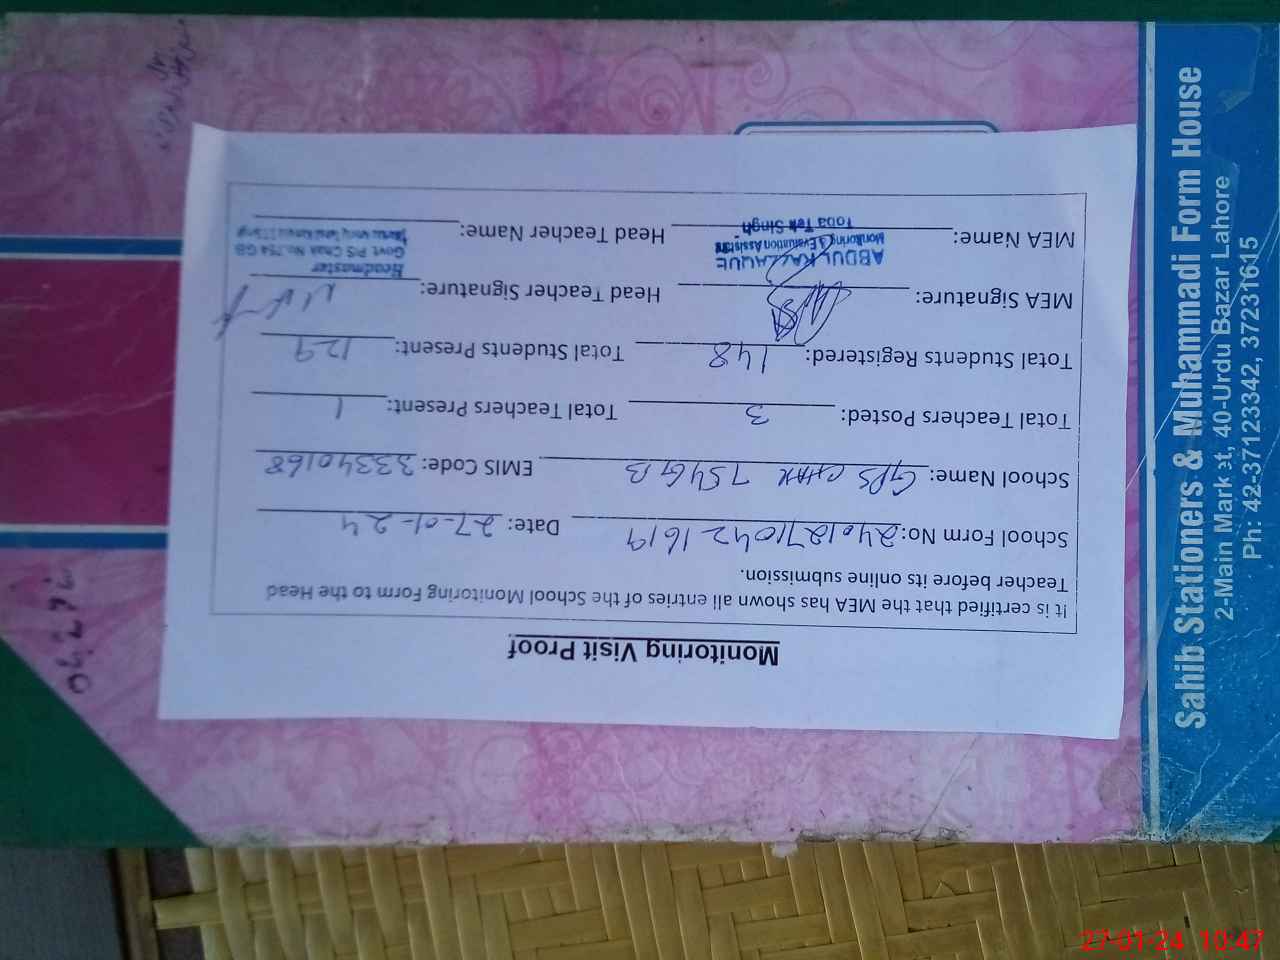 Monitoring Visit Proof
It is certified that the MEA has shown all entries of the School Monitoring Form to the Head
Teacher before its online submission.
School Form No: 2401271042 1619 Date: 27-01-24
School Name: GPS CHAK 754GB EMIS Code: 33340168
Total Teachers Posted: 3 Total Teachers Present: 1
Total Students Registered: 148 Total Students Present: 129
MEA Signature: Head Teacher Signature:
MEA Name: Head Teacher Name:
ABDUL RAZZAQUE
Monitoring & Evaluation Assistant
Toba Tek Singh
Headmaster
Govt. P/S Chak No.754 GB
Sahib Stationers & Muhammadi Form House
2-Main Market, 40-Urdu Bazar Lahore
Ph: 42-37123342, 37231615
27-01-24 10:47